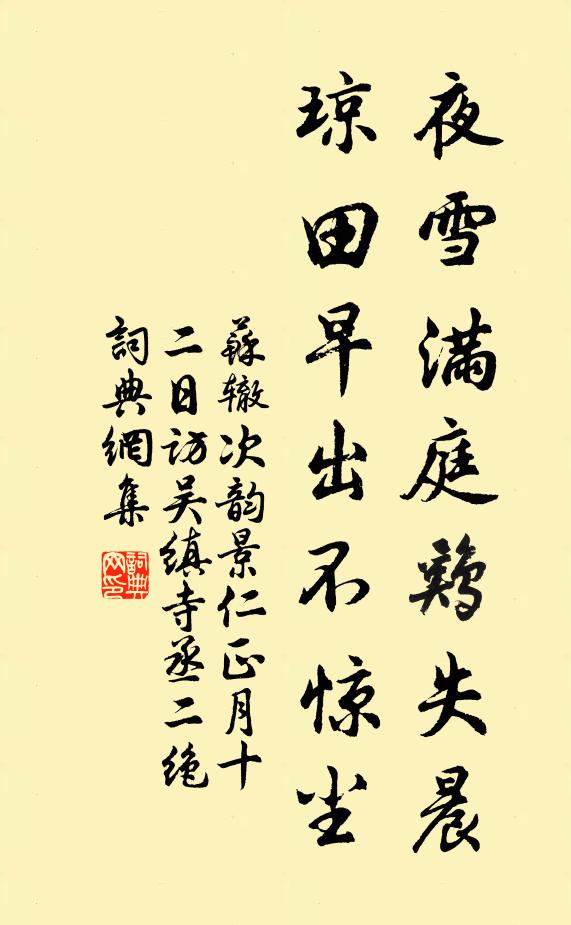 夜雪满庭鷄失晨
琼田早出不惊尘
蘇辙次韵景仁正月十
二日访吴缜寺丞二绝
詞典網集
詞典网印